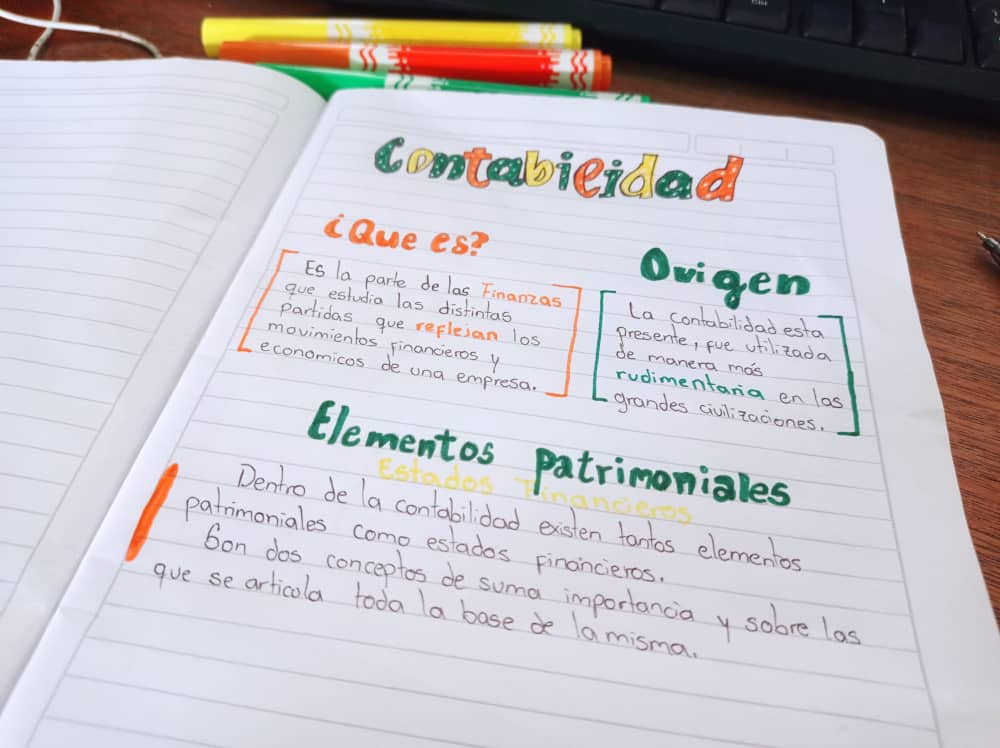 Contabilidad
¿Que es?
Es la parte de las Finanzas
que estudia las distintas
partidas que reflejan los
movimientos financieros y
economicos de una empresa.
Origen
La contabilidad esta
presente, fue utilizada
de manera mas
rudimentaria en las
grandes civilizaciones.
Elementos patrimoniales
Estados Financieros
Dentro de la contabilidad existen tantos elementos
patrimoniales como estados financieros.
Son dos conceptos de suma importancia y sobre las
que se articola toda la base de la misma.